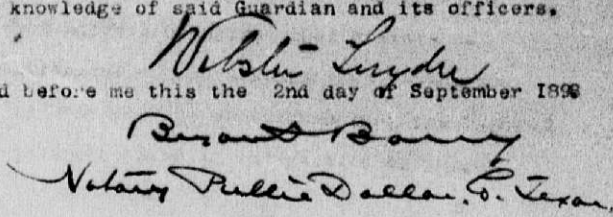 knowledge of said Guardian and its officers.
Webster Snyder
d before me this the 2nd day of September 1898
Barry
Notary Public Dallas, C. Texas.